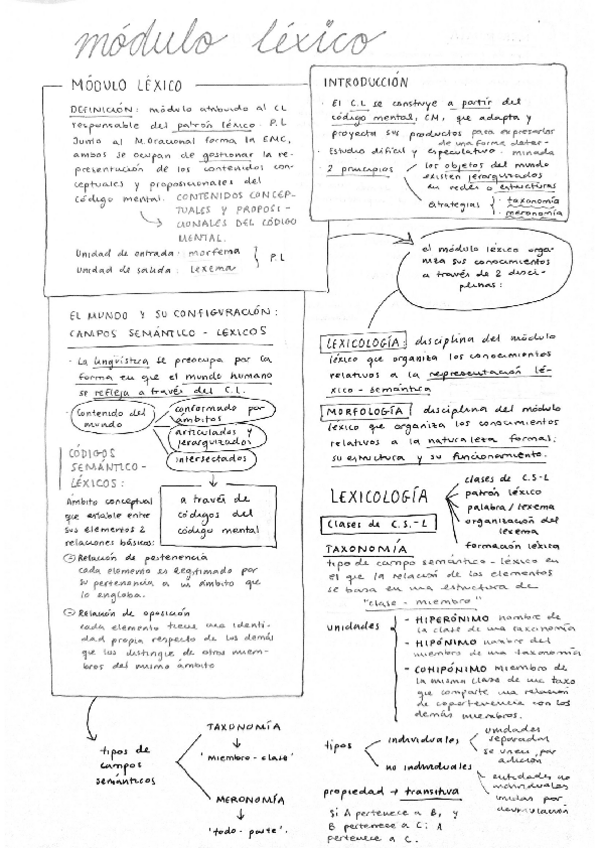 módulo léxico
MÓDULO LÉXICO
DEFINICIÓN: módulo atribuido al CL
responsable del patrón léxico. P.L
Junto al M.Oracional forma la EMC,
ambos se ocupan de gestionar la re-
presentución de los contenidos con-
ceptuales y proposicionales del
código mental. CONTENIDOS CONCEP-
TUALES Y PROPOSI-
CIONALES DEL CÓDIGO
MENTAL.
Unidad de entrada: morfema
Unidad de salida: Lexema
P.L
INTRODUCCIÓN
· El C.L se construye a partir del
código mental, CM, que adapta y
proyecta sus productos para expresarlos
de una forma deter-
minada
· Estudio difícil y especulativo.
2 principios
los objetos del mundo
existen jerarquizados
en redes o estructuras
estrategias
· taxonomía
· meronomía
el módulo léxico orga-
niza sus conocimientos
a través de 2 disci-
plinas:
EL MUNDO Y SU CONFIGURACIÓN:
CAMPOS SEMÁNTICO - LÉXICOS
· La lingüística se preocupa por la
forma en que el mundo humano
se refleja a través del C.L.
Contenido del
mundo
conformado por
ámbitos
articulados y
jerarquizados
intersectados
CÓDIGOS
SEMÁNTICO-
LÉXICOS:
Ámbito conceptual
que establece entre
sus elementos 2
relaciones básicas:
a través de
códigos del
código mental
Relación de pertenencia
cada elemento es legitimado por
su pertenencia a un ámbito que
lo engloba.
Relación de oposición
cada elemento tiene una identi-
dad propia respecto de los demás
que los distingue de otros miem-
bros del mismo ámbito
tipos de
campos
semánticos
TAXONOMÍA
'miembro - clase'
MERONOMÍA
'todo - parte'.
LEXICOLOGÍA: disciplina del módulo
léxico que organiza los conocimientos
relativos a la representación lé-
xico - semántica
MORFOLOGÍA: disciplina del módulo
léxico que organiza los conocimientos
relativos a la naturaleza formal:
su estructura y su funcionamiento.
LEXICOLOGÍA
clases de C.S-L
patrón léxico
palabra/lexema
organización del
lexema
formación léxica
Clases de C.S.-L
TAXONOMÍA
tipo de campo semántico - léxico en
el que la relación de los elementos
se basa en una estructura de
"clase - miembro"
unidades
- HIPERÓNIMO nombre de
la clase de una taxonomía
- HIPÓNIMO nombre del
miembro de una taxonomía
- COHIPÓNIMO miembro de
la misma clase de una taxo
que comparte una relación
de copertenencia con los
demás miembros.
tipos
individuales
unidades
separadas
se unen por
adición
no individuales
entidades no
individuales
unidas por
propiedad → transitiva
Si A pertenece a B, y
B pertenece a C: A
pertenece a C.